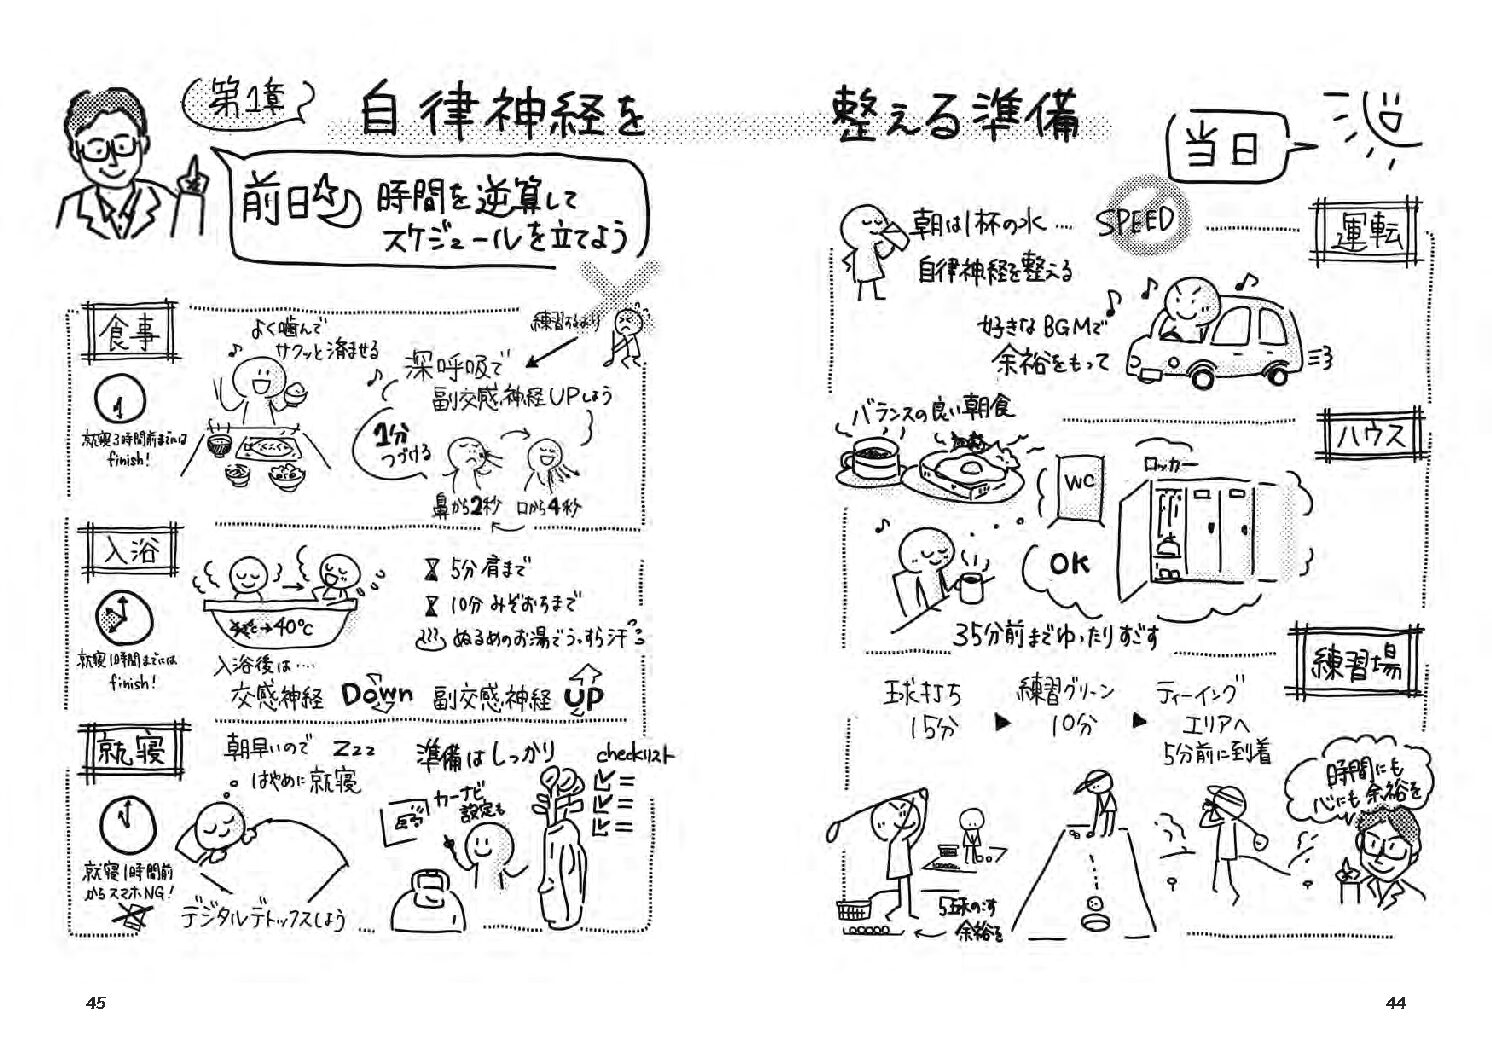 第1章
自律神経を
整える準備
前日
時間を逆算して
スケジュールを立てよう
食事
就寝3時間前までには
finish!
よく噛んで
サクッと済ませる
深呼吸で
副交感神経UPしよう
1分
つづける
鼻から2秒
口から4秒
入浴
就寝1時間までには
finish!
→40℃
5分肩まで
10分みぞおちまで
ぬるめのお湯でうっすら汗
入浴後は…
交感神経 Down 副交感神経 UP
就寝
就寝1時間前
からスマホNG!
朝早いので
はやめに就寝
zzz
デジタルデトックスしよう
準備はしっかり
カーナビ
設定も
checkリスト
45
当日
朝は1杯の水…
自律神経を整える
SPEED
運転
好きなBGMで
余裕をもって
バランスの良い朝食
ハウス
WC
ロッカー
OK
35分前までゆったりすごす
練習場
球打ち
15分
▶
練習グリーン
10分
▶
ティーイング
エリアへ
5分前に到着
5球のこす
余裕を
時間にも
心にも余裕を
44